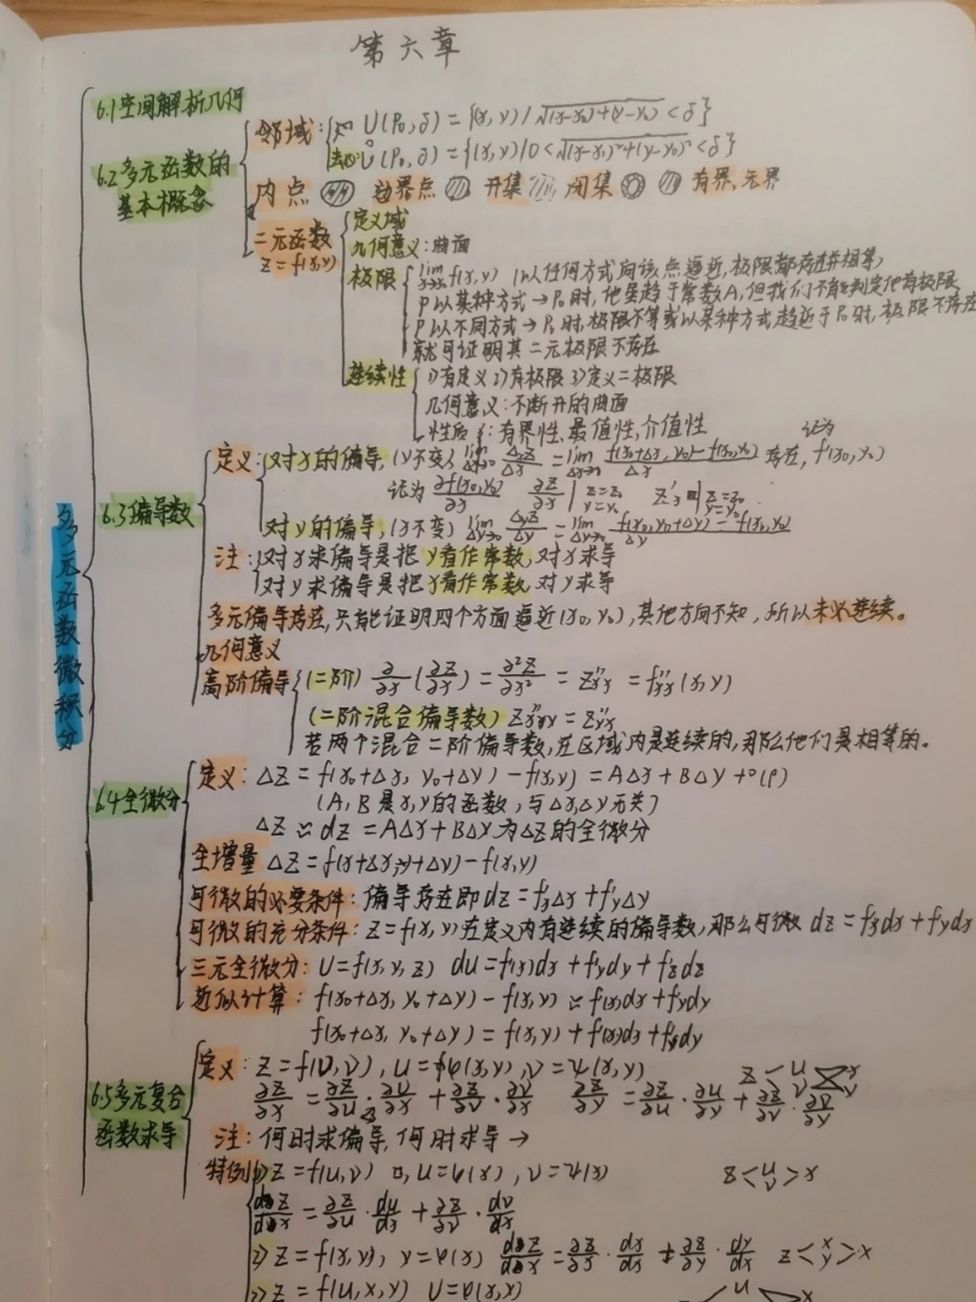 第六章
多元函数微积分
6.1空间解析几何
6.2多元函数的
基本概念
邻域: U(P₀,δ) = {(x,y)/√(x-x₀)+(y-y₀) < δ}
去心:Ů(P₀,δ) = {(x,y)/0<√(x-x₀)²+(y-y₀)² < δ}
内点 边界点 开集 闭集 有界,无界
二元函数
Z=f(x,y)
定义域
几何意义:曲面
极限 lim f(x,y) (以任何方式向该点逼近,极限都存在并相等)
P以某种方式→P₀时,他虽趋于常数A,但我们不能判定他有极限
P以不同方式→P₀时,极限不等或以某种方式趋近于P₀时,极限不存在
就可证明其二元极限不存在
连续性 1)有定义 2)有极限 3)定义=极限
几何意义:不断开的曲面
性质:有界性,最值性,介值性
6.3偏导数
定义:对x的偏导,(y不变) lim Δx→0 ΔxZ/Δx = lim Δx→0 f(x₀+Δx,y₀)-f(x₀,y₀)/Δx 存在, 记为 f(x₀,y₀)
记为 ∂f(x₀,y₀)/∂x ∂Z/∂x | x=x₀ y=y₀ Z'x | x=x₀ y=y₀
对y的偏导,(x不变) lim Δy→0 ΔyZ/Δy = lim Δy→0 f(x₀,y₀+Δy)-f(x₀,y₀)/Δy
注:对x求偏导是把y看作常数,对x求导
对y求偏导是把x看作常数,对y求导
多元偏导存在,只能证明四个方面逼近(x₀,y₀),其他方向不知,所以未必连续。
几何意义
高阶偏导 (二阶) ∂/∂x(∂Z/∂x) = ∂²Z/∂x² = Z''xx = f''xx(x,y)
(二阶混合偏导数) Z''xy = Z''yx
若两个混合二阶偏导数,在区域内是连续的,那么他们是相等的。
6.4全微分
定义: ΔZ = f(x₀+Δx, y₀+Δy)-f(x,y) = AΔx+BΔy+o(ρ)
(A,B是x,y的函数,与Δx,Δy无关)
ΔZ ≈ dz = AΔx+BΔy为ΔZ的全微分
全增量 ΔZ = f(x+Δx,y+Δy)-f(x,y)
可微的必要条件:偏导存在即dz = f'xΔx+f'yΔy
可微的充分条件:Z=f(x,y)在定义内有连续的偏导数,那么可微 dz = fxdx+fydy
三元全微分: U=f(x,y,z) du=f(x)dx+fydy+fzdz
近似计算: f(x₀+Δx, y₀+Δy)-f(x,y) ≈ f(x)dx+fydy
f(x₀+Δx, y₀+Δy) = f(x,y)+f(x)dx+fydy
6.5多元复合
函数求导
定义: Z=f(U,V), U=φ(x,y), V=ψ(x,y)
∂Z/∂x = ∂Z/∂U · ∂U/∂x + ∂Z/∂V · ∂V/∂x ∂Z/∂y = ∂Z/∂u · ∂U/∂y + ∂Z/∂V · ∂V/∂y
注:何时求偏导,何时求导→
特例 1) Z=f(u,v) , U=φ(x), V=ψ(x) z<u v>x
dZ/dx = ∂Z/∂u · du/dx + ∂Z/∂V · dv/dx
2) Z=f(x,y), y=φ(x) dZ/dx = ∂Z/∂x · dx/dx + ∂Z/∂y · dy/dx z<x y>x
Z=f(U,x,y) U=φ(x,x)